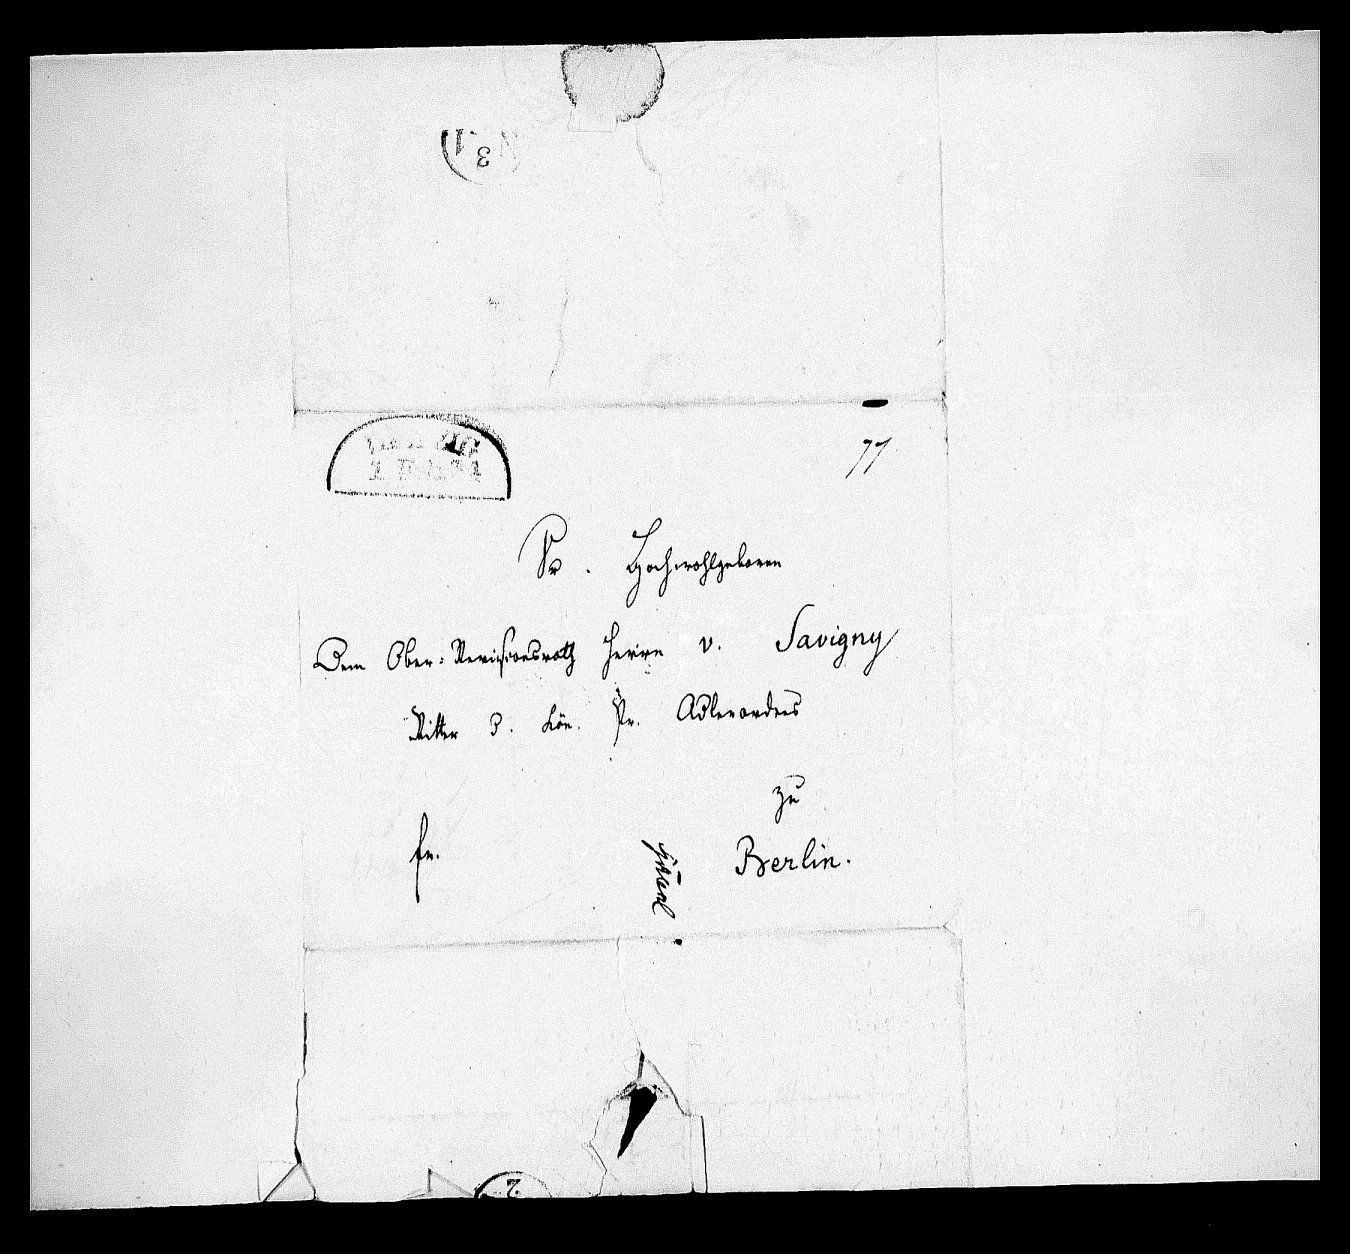 N. 1
3
1 Feb
77
Sr. Hochwohlgeboren
Dem Ober-Revisionsrath Herrn v. Savigny
Ritter d. Kön. Pr. Adlerordens
zu
fr.
Berlin.
2